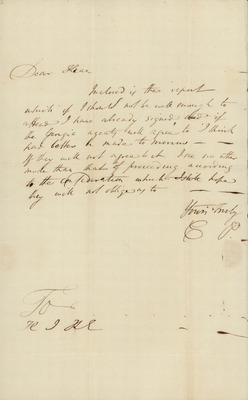 Dear Hear
Inclosed is the report
which if I should not be well enough to
attend I have already signed, and if
the Georgia agents will agree to I think
had better be made to morrow —
If they will not agree to it I see no other
mode than that of proceeding according
to the Confederation which I still hope
they will not oblige us to —
Yours truly
C P.
To
H I